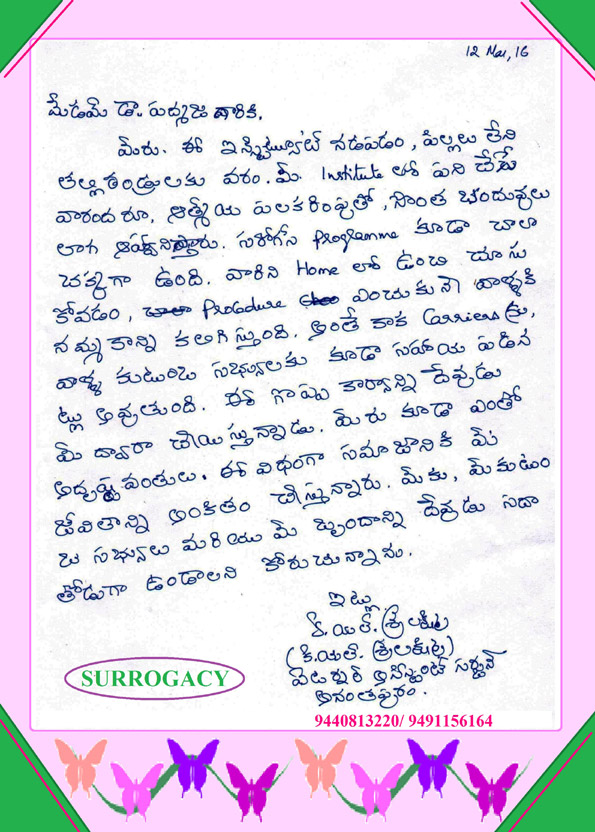 12 Mar, 16
మేడమ్ డా. పద్మజ గారికి,
మీరు. ఈ ఇన్స్టిట్యూట్ నడపడం, పిల్లలు లేని
తల్లితండ్రులకు వరం. మీ Institute లో పని చేసే
వారందరూ, ఆత్మీయ పలకరింపుతో, సొంత బందువులు
లాగ సరోగేసి programme కూడా చాలా
చక్కగా ఉంది. వారిని Home లో ఉంచి చూసు
కోవడం, Procedure ఎంచుకునే వాళ్ళకి
నమ్మకాన్ని కలిగిస్తుంది. అంతే కాక Carriers కు,
వాళ్ళ కుటుంబ సభ్యులకు కూడా సహాయ పడిన
ట్లు అవుతుంది. ఈ గొప్ప కార్యాన్ని దేవుడు
మీ ద్వారా చేయిస్తున్నాడు. మీరు కూడా ఎంతో
అదృష్టవంతులు. ఈ విధంగా సమాజానికి మీ
జీవితాన్ని అంకితం చేస్తున్నారు. మీకు, మీ కుటుం
బ సభ్యులు మరియు మీ బృందాన్ని దేవుడు సదా
తోడుగా ఉండాలని కోరుచున్నాము.
ఇట్లు
కె. యల్. శ్రీలక్ష్మి
(కె. యల్. శ్రీలక్ష్మి)
వెటర్నరీ అసిస్టెంట్ సర్జన్
అనంతపురం.
SURROGACY
9440813220/ 9491156164